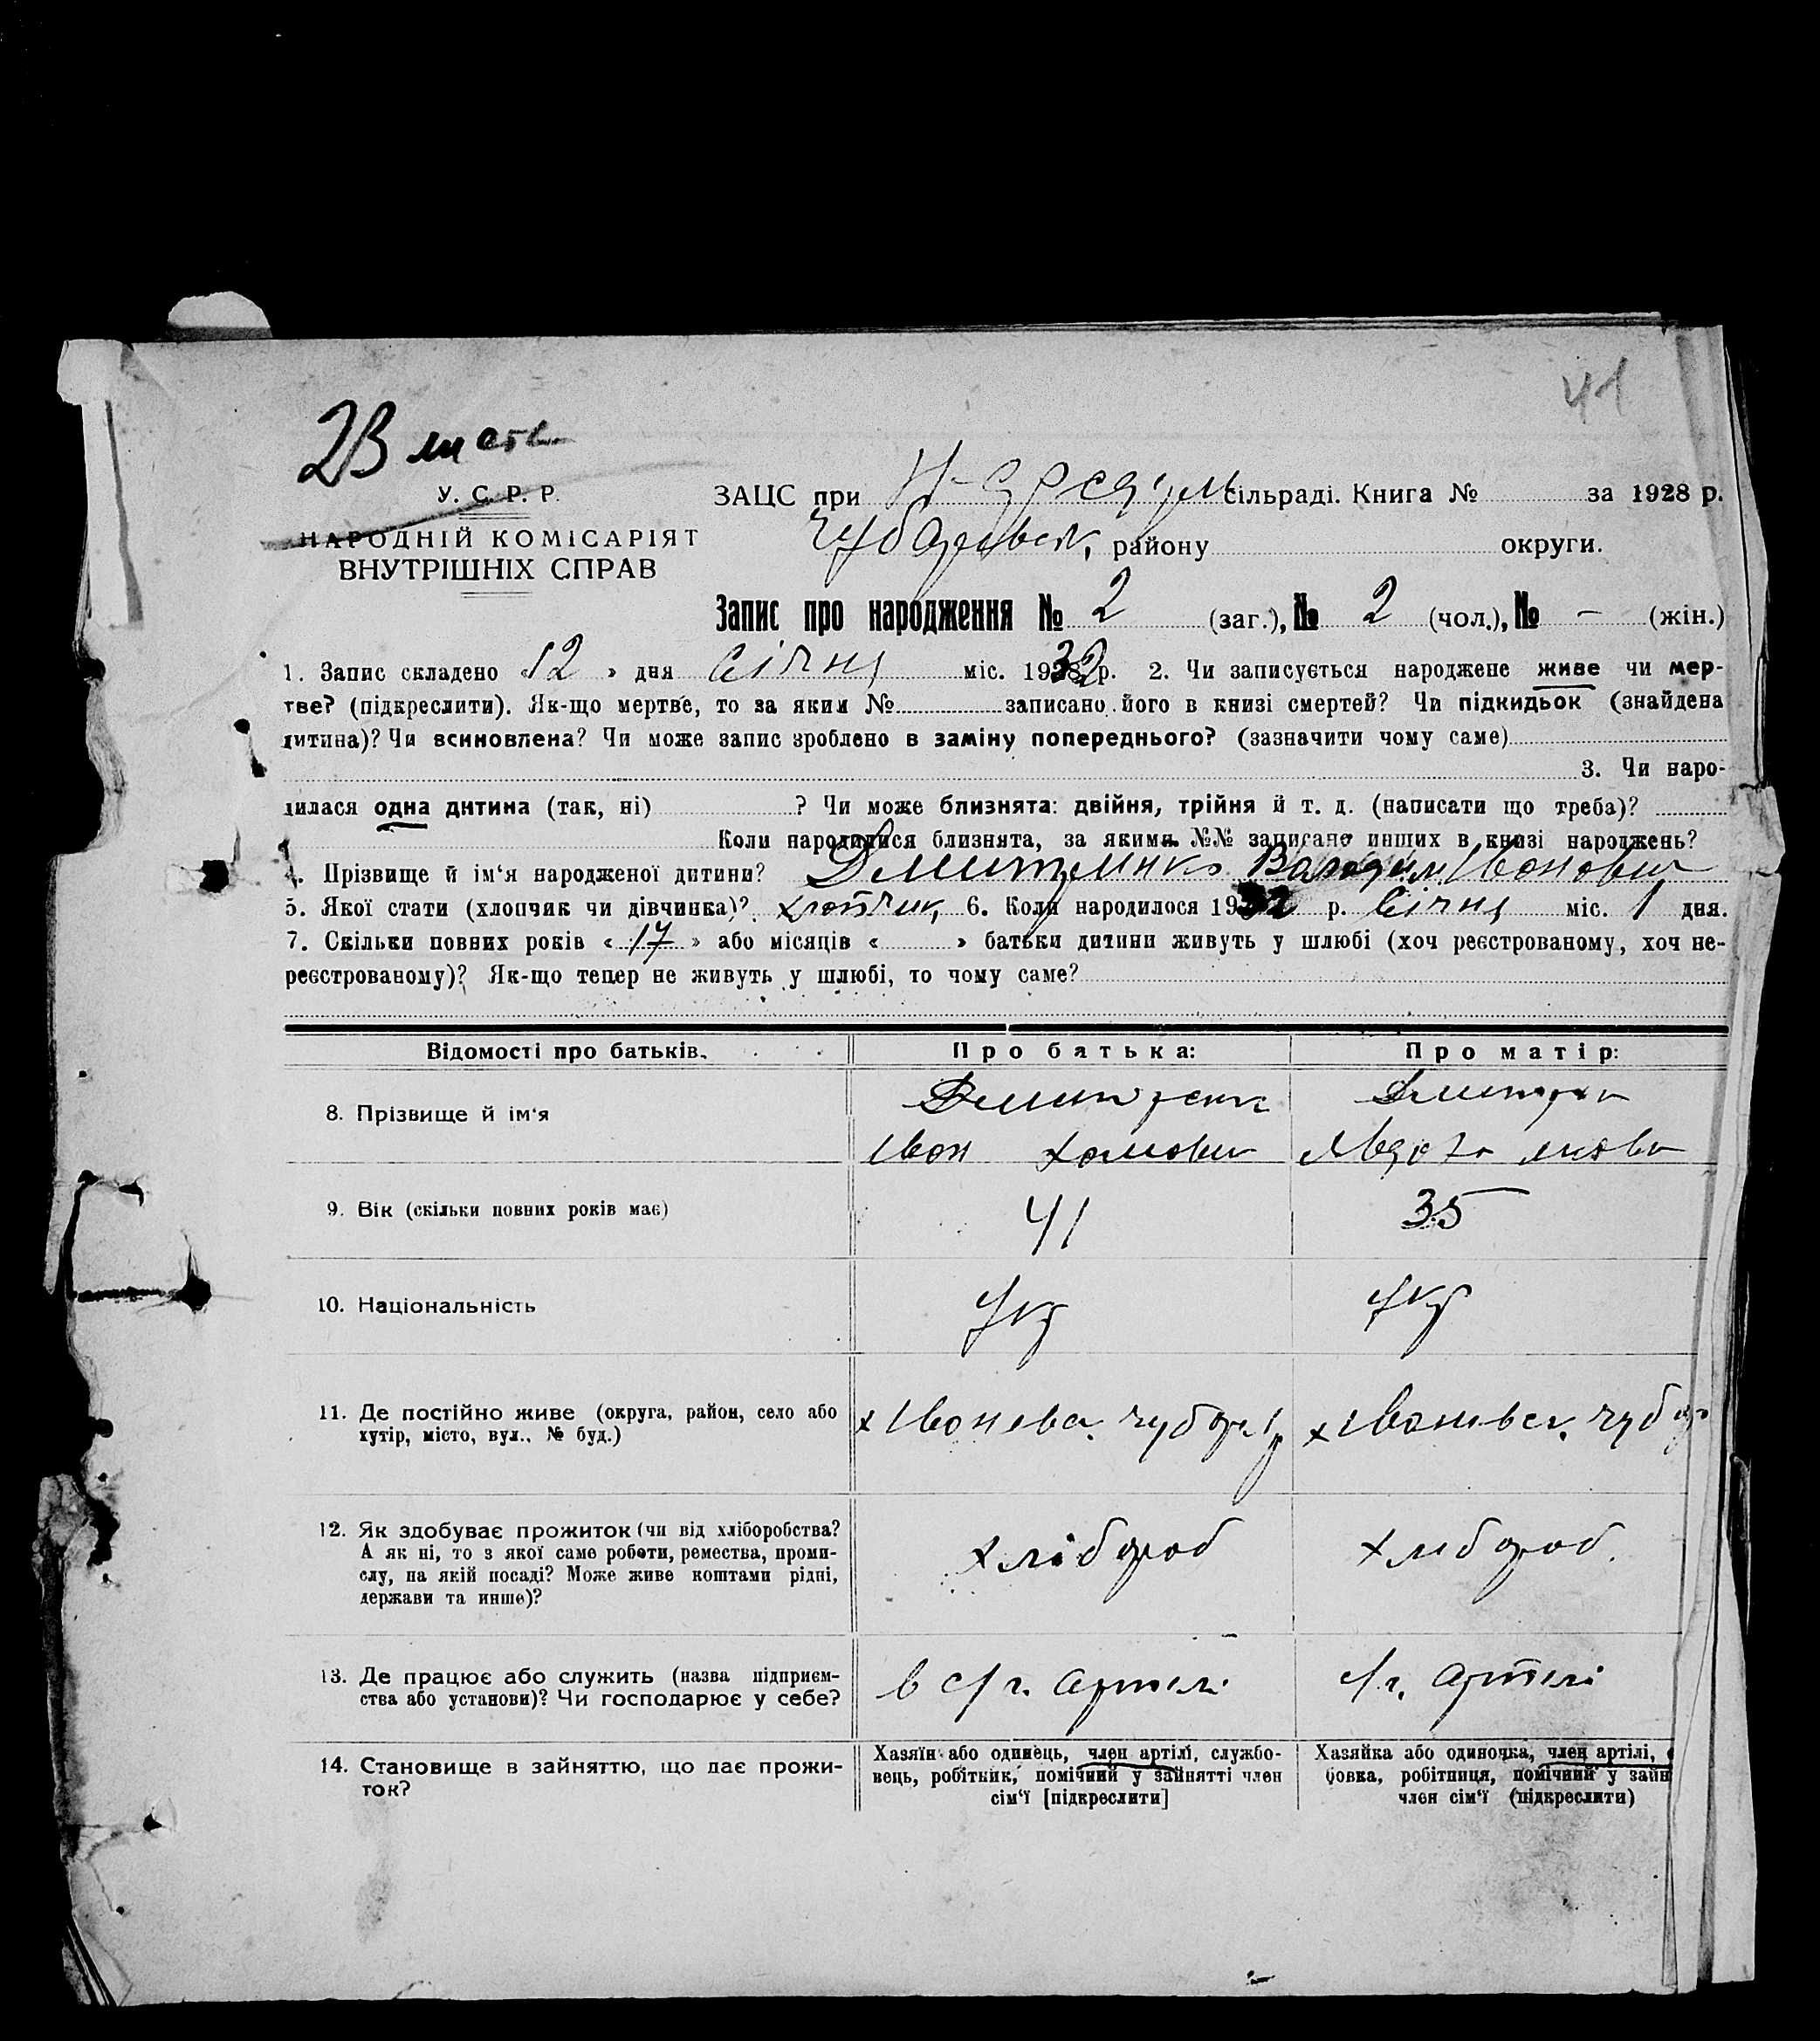 41
23
У. С. Р. Р.
НАРОДНІЙ КОМІСАРІЯТ
ВНУТРІШНІХ СПРАВ
ЗАЦС при сільраді. Книга № за 1928 р.
району округи.
Запис про народження № 2 (заг.), № 2 (чол.), № – (жін.)
1. Запис складено 12 » дня Січня міс. 1932 р. 2. Чи записується народжене живе чи мер-
тве? (підкреслити). Як-що мертве, то за яким № записано його в книзі смертей? Чи підкидьок (знайдена
дитина)? Чи всиновлена? Чи може запис зроблено в заміну попереднього? (зазначити чому саме)
3. Чи наро-
дилася одна дитина (так, ні) ? Чи може близнята: двійня, трійня й т. д. (написати що треба)?
Коли народилися близнята, за якими №№ записано инших в книзі народжень?
4. Прізвище й ім‘я народженої дитини? Дмитренко Володим. Іванович
5. Якої стати (хлопчик чи дівчинка)? хлопчик 6. Коли народилося 1932 р. Січня міс. 1 дня.
7. Скільки повних років « 17 » або місяців « » батьки дитини живуть у шлюбі (хоч реєстрованому, хоч не-
реєстрованому)? Як-що тепер не живуть у шлюбі, то чому саме?
Відомості про батьків. Про батька: Про матір:
8. Прізвище й ім‘я
Іван Хомович
9. Вік (скільки повних років має) 41 35
10. Національність Укр Укр
11. Де постійно живе (округа, район, село або
хутір, місто, вул., № буд.)
12. Як здобуває прожиток (чи від хліборобства?
А як ні, то з якої саме роботи, ремества, проми-
слу, на якій посаді? Може живе коштами рідні,
держави та инше)?
хлібороб хлібороб.
13. Де працює або служить (назва підприєм-
ства або установи)? Чи господарює у себе?
в с/г. артелі с/г. артелі
14. Становище в зайняттю, що дає прожи-
ток?
Хазяїн або одинець, член артілі, службо-
вець, робітник, помічний у зайнятті член
сім‘ї [підкреслити]
Хазяйка або одиночка, член артілі, с
бовка, робітниця, помічний у зайн
член сім‘ї (підкреслити)